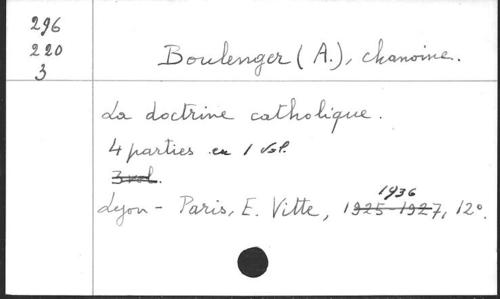 296
220
3
Boulenger (A.), chanoine.
La doctrine catholique.
4 parties en 1 vol.
3 vol.
Lyon - Paris, E. Vitte, 1925-1927, 12°.
1936